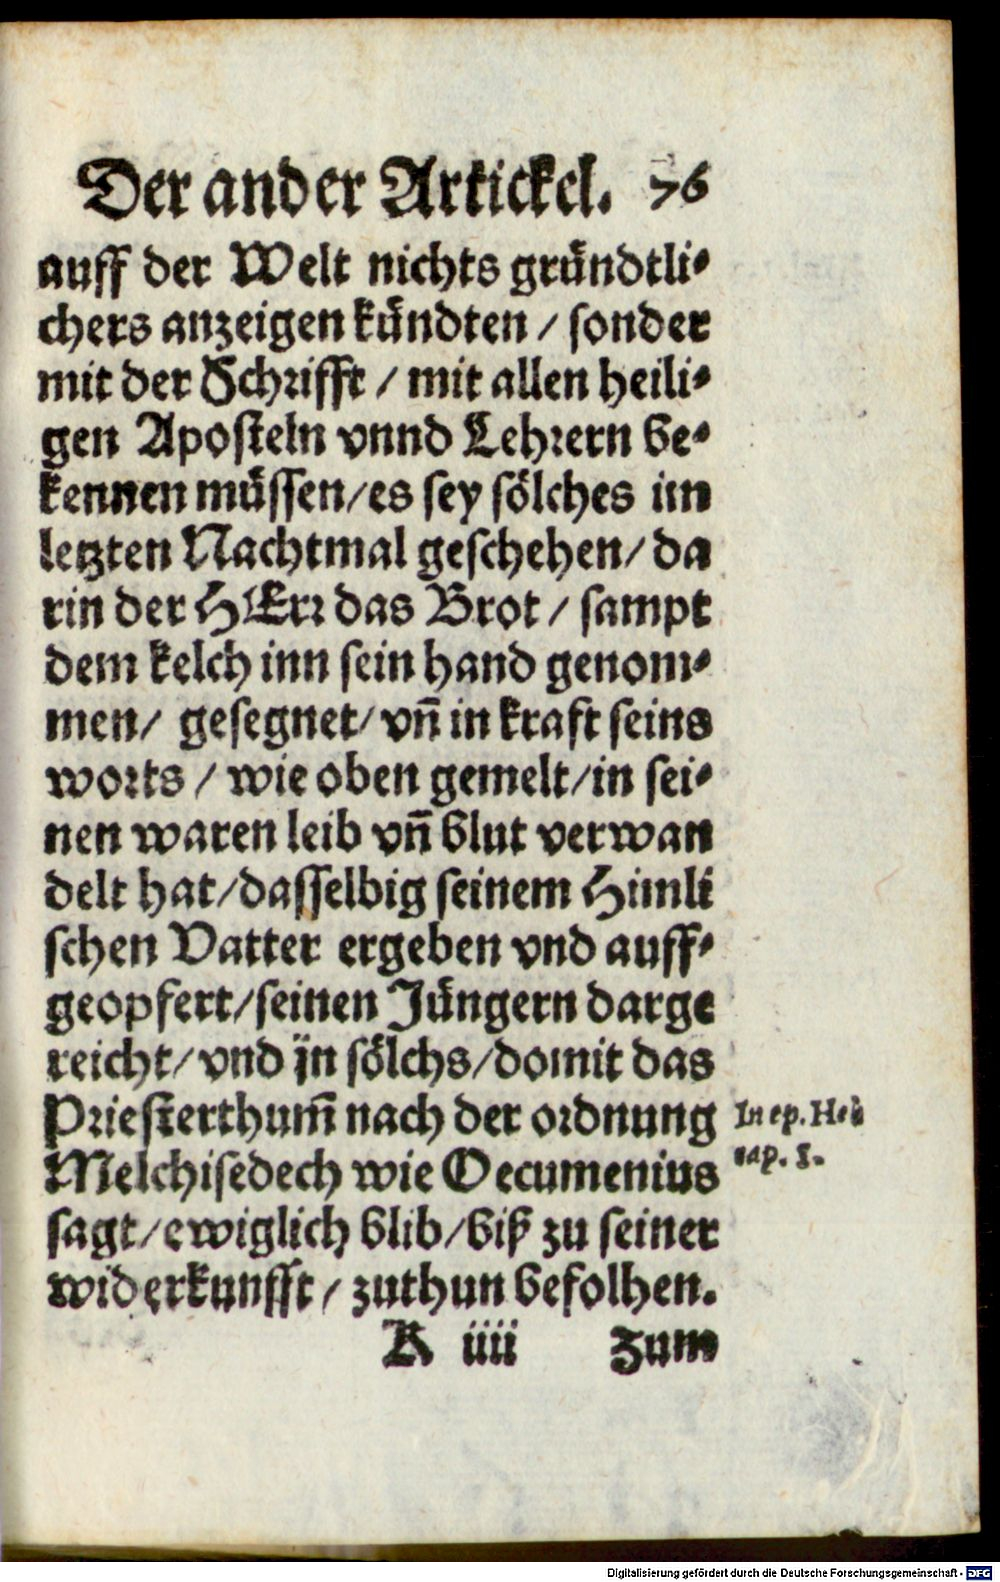 Der ander Artickel. 76
auff der Welt nichts gründtli⸗
chers anzeigen kündten / sonder
mit der Schrifft / mit allen heili⸗
gen Aposteln vnnd Lehrern be⸗
kennen müssen/es sey sölches im
letzten Nachtmal geschehen/ da
rin der HErr das Brot / sampt
dem kelch inn sein hand genom⸗
men/ gesegnet/ vñ in kraft seins
worts / wie oben gemelt/in sei⸗
nen waren leib vñ blut verwan
delt hat/dasselbig seinem Himli
schen Vatter ergeben vnd auff⸗
geopfert/seinen Jüngern darge
reicht/ vnd jn sölchs/domit das
Priesterthum̄ nach der ordnung
Melchisedech wie Oecumenius
sagt/ewiglich blib/biß zu seiner
widerkunfft / zuthun befolhen.
In ep. Heb
cap. 5.
K iiii zum
Digitalisierung gefördert durch die Deutsche Forschungsgemeinschaft - DFG